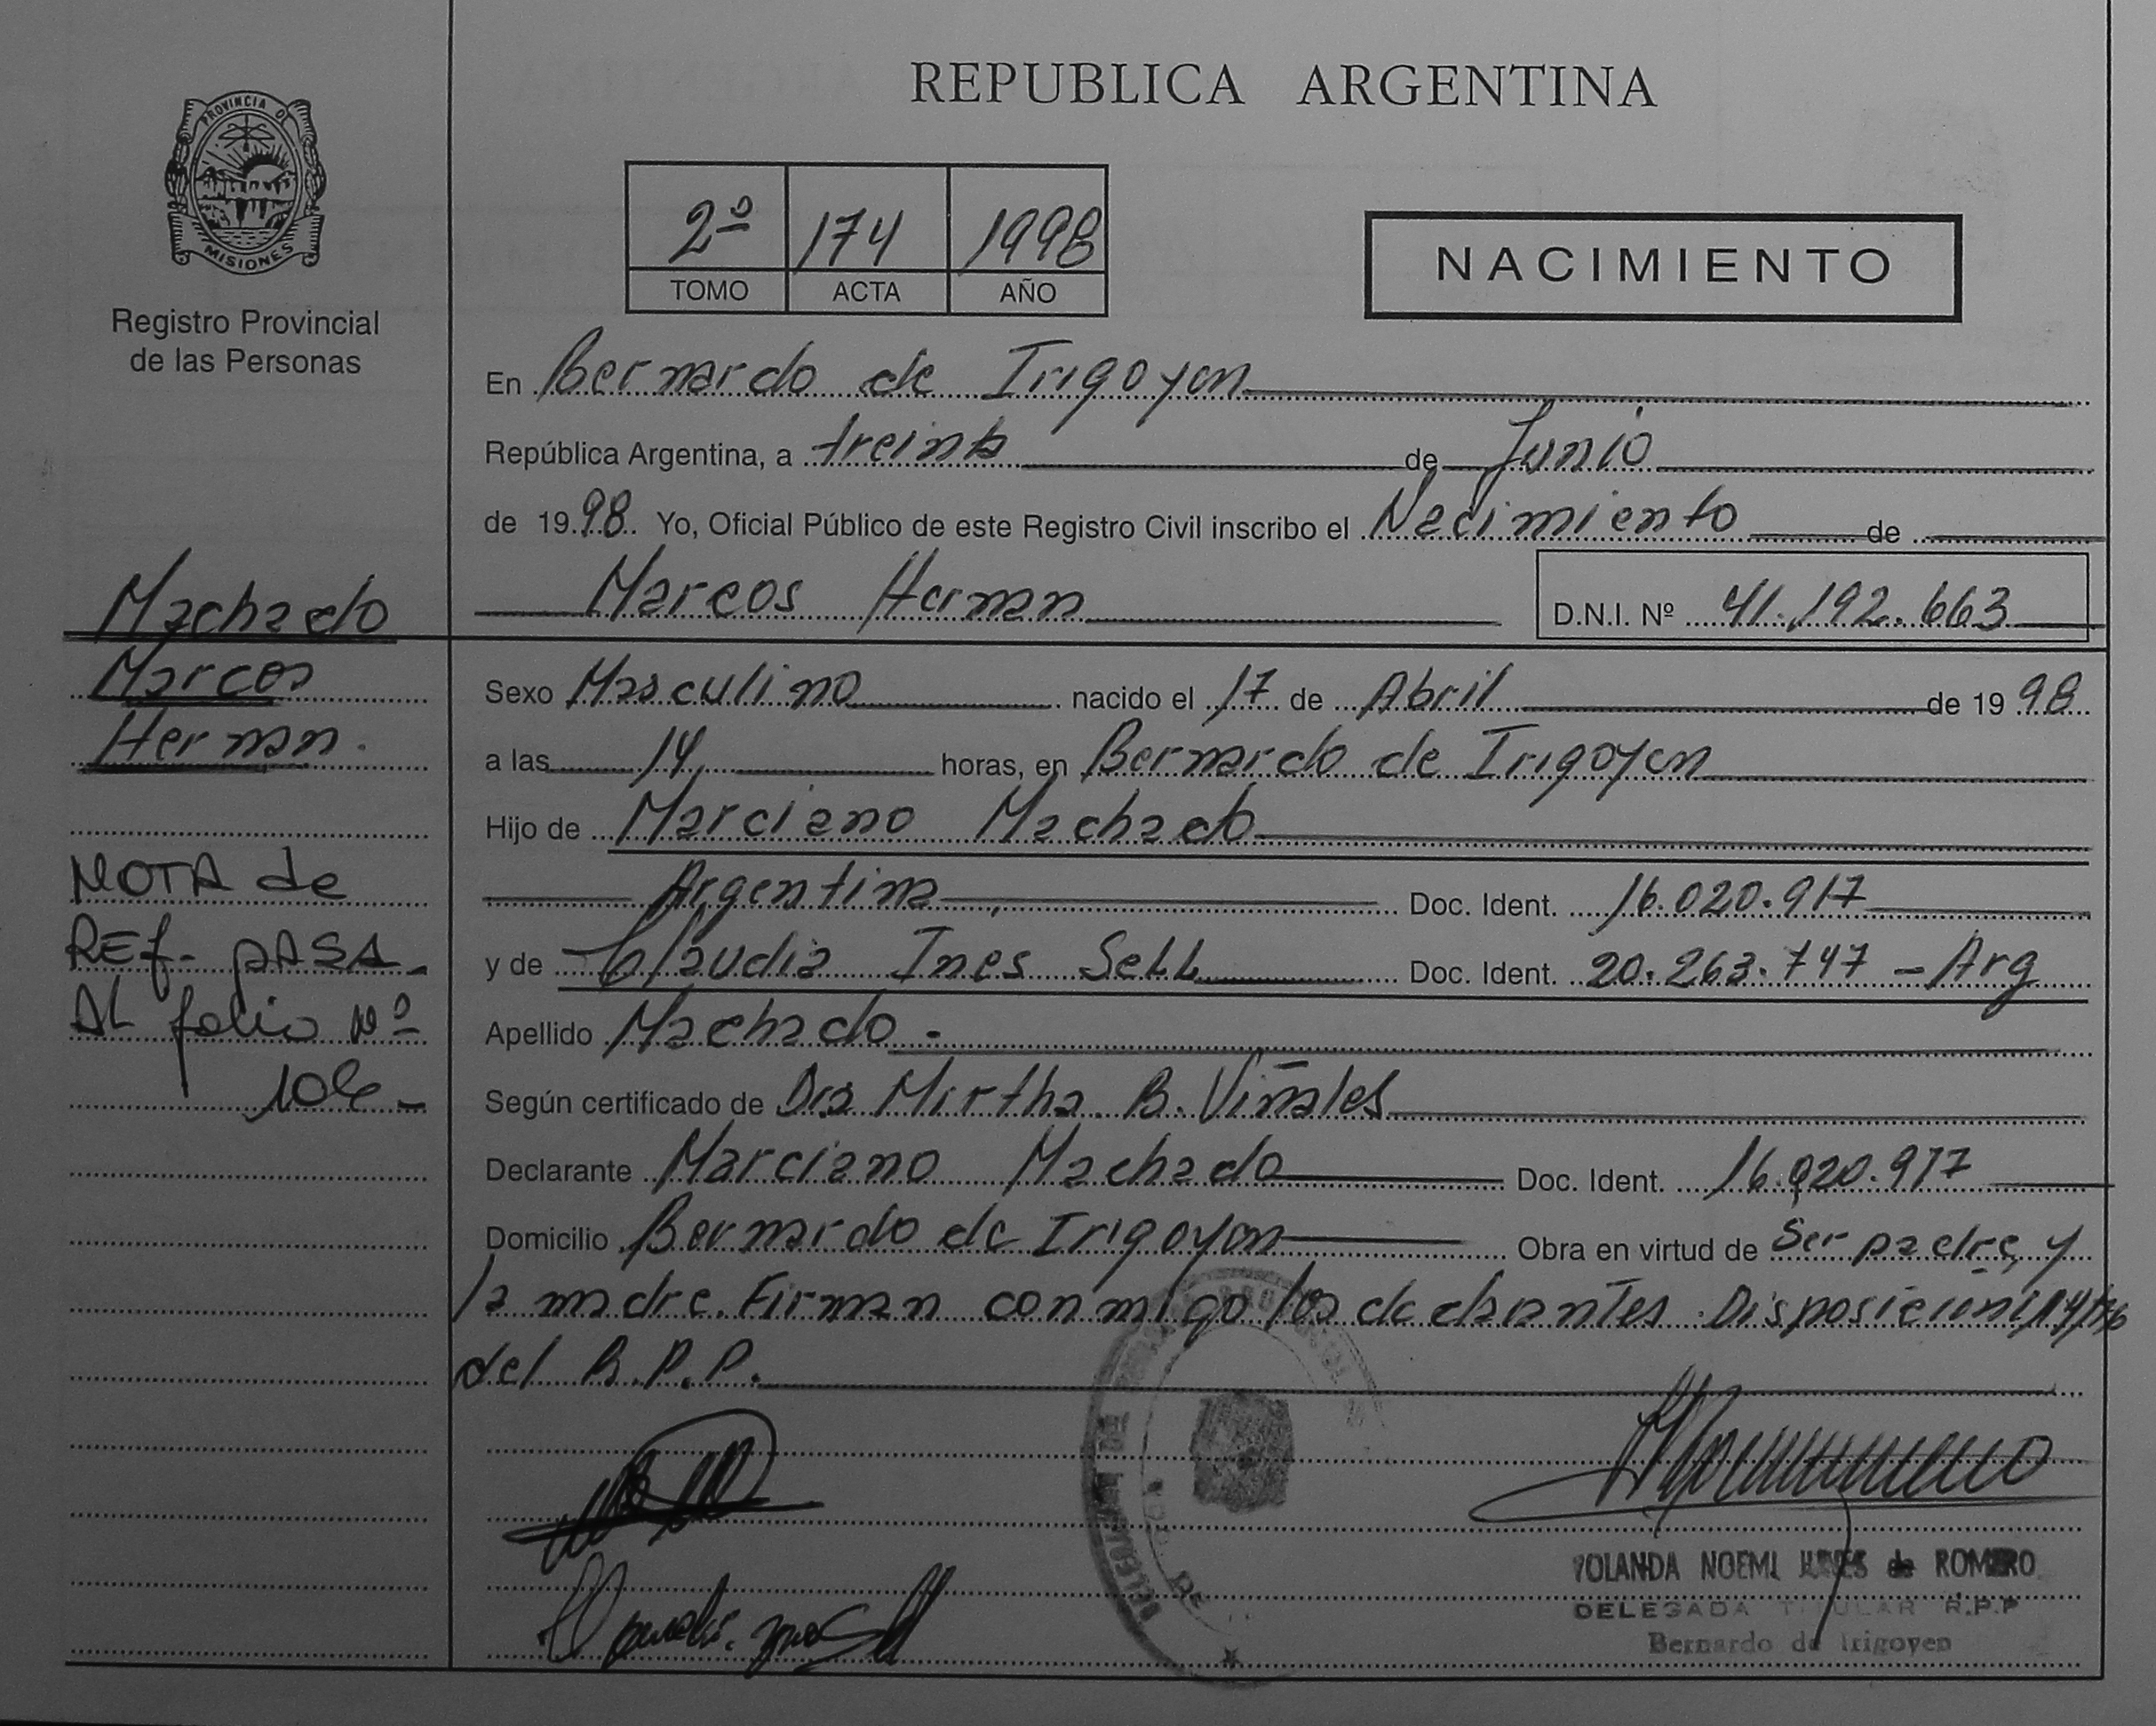 PROVINCIA DE
MISIONES
Registro Provincial
de las Personas
REPUBLICA ARGENTINA
2º 174 1998
TOMO ACTA AÑO
NACIMIENTO
En Bernardo de Irigoyen
República Argentina, a treinta de Junio
de 1998 Yo, Oficial Público de este Registro Civil inscribo el Nacimiento de
Marcos Hernan
D.N.I. Nº 41.192.663
Machado
Marcos
Hernan.
NOTA de
REf- pASA
AL folio Nº
Sexo Masculino nacido el 17 de Abril de 1998
a las 14 horas, en Bernardo de Irigoyen
Hijo de Marciano Machado
Argentina Doc. Ident. 16.020.917
y de Claudia Ines Sell Doc. Ident. 20.263.747 - Arg
Apellido Machado -
Según certificado de Dra Mirtha B. Viñales
Declarante Marciano Machado Doc. Ident. 16.020.917
Domicilio Bernardo de Irigoyen Obra en virtud de Ser padre y
la madre. Firman conmigo los declarantes. Disposición
del R.P.P.
YOLANDA NOEMI de ROMERO
DELEGADA TITULAR R.P.P
Bernardo de Irigoyen